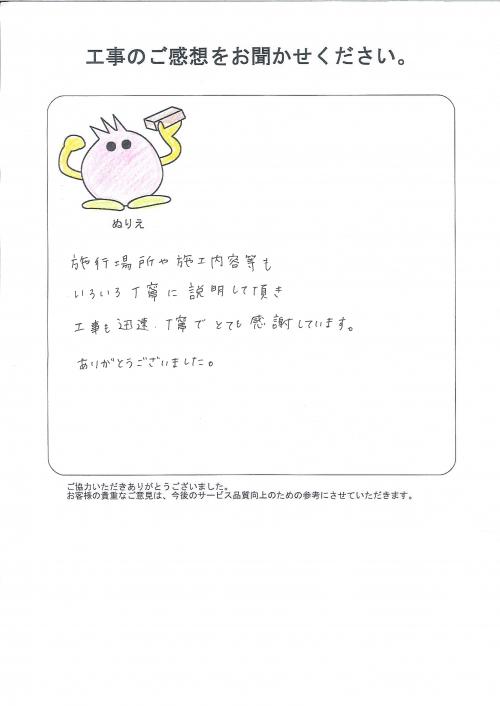 工事のご感想をお聞かせください。
ぬりえ
施行場所や施工内容等も
いろいろ丁寧に説明して頂き
工事も迅速、丁寧でとても感謝しています。
ありがとうございました。
ご協力いただきありがとうございました。
お客様の貴重なご意見は、今後のサービス品質向上のための参考にさせていただきます。